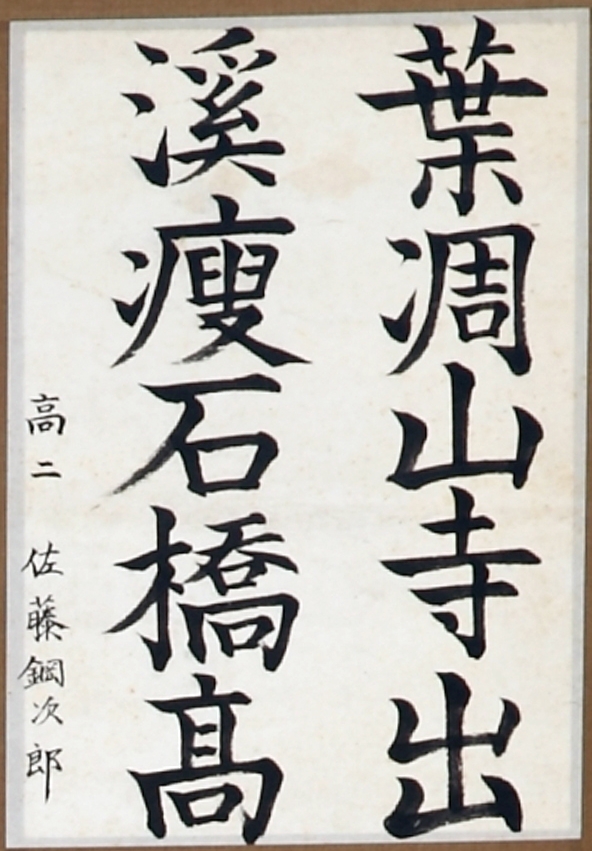 葉凋山寺出
溪瘦石橋髙
高二 佐藤鋼次郎